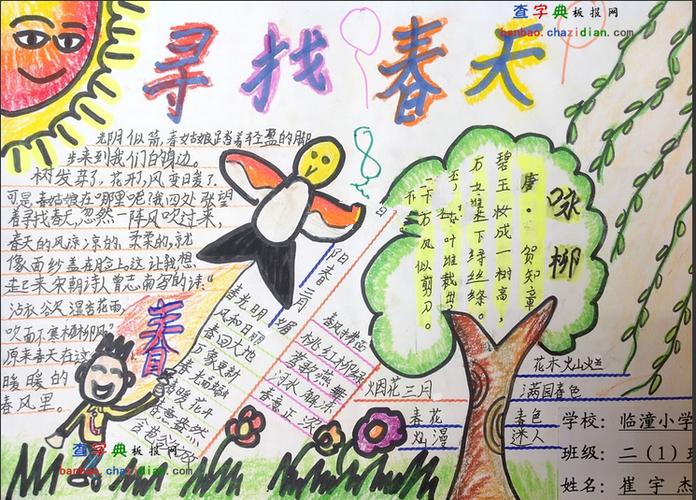 查字典 板报网
banbao.chazidian.com
寻找春天
光阴似箭,春姑娘踏着轻盈的脚
步来到我们的身边。
树发芽了,花开了,风变日暖了,
可是春姑娘在哪里呢?我四处张望
着寻找春天,忽然一阵风吹过来,
春天的风凉凉的,柔柔的,就
像面纱盖在脸上这让我想
起了宋朝诗人曾志南写的诗:“
沾衣欲湿杏花雨,
吹面不寒杨柳风。”
原来春天在这
暖暖的
春风里。
春
咏柳
唐·贺知章
碧玉妆成一树高,
万条垂下绿丝绦。
不知细叶谁裁出,
二月春风似剪刀。
阳春三月
春光明媚
风和日丽
春回大地
桃红柳绿
莺歌燕舞
烟花三月
春花
灿漫
花木
满园春色
春色
迷人
学校: 临潼小学
班级: 二(1)班
姓名: 崔宇杰
查字典 板报网
banbao.chazidian.com